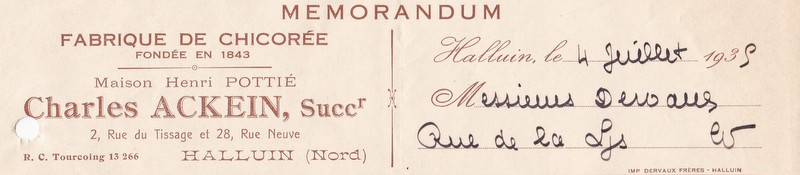 MEMORANDUM
FABRIQUE DE CHICORÉE
FONDÉE EN 1843
Maison Henri POTTIÉ
Charles ACKEIN, Succr
2, Rue du Tissage et 28, Rue Neuve
R. C. Tourcoing 13 266 HALLUIN (Nord)
Halluin, le 4 Juillet 1935
Messieurs Dervaux
Rue de la Lys EV
IMP DERVAUX FRÈRES - HALLUIN